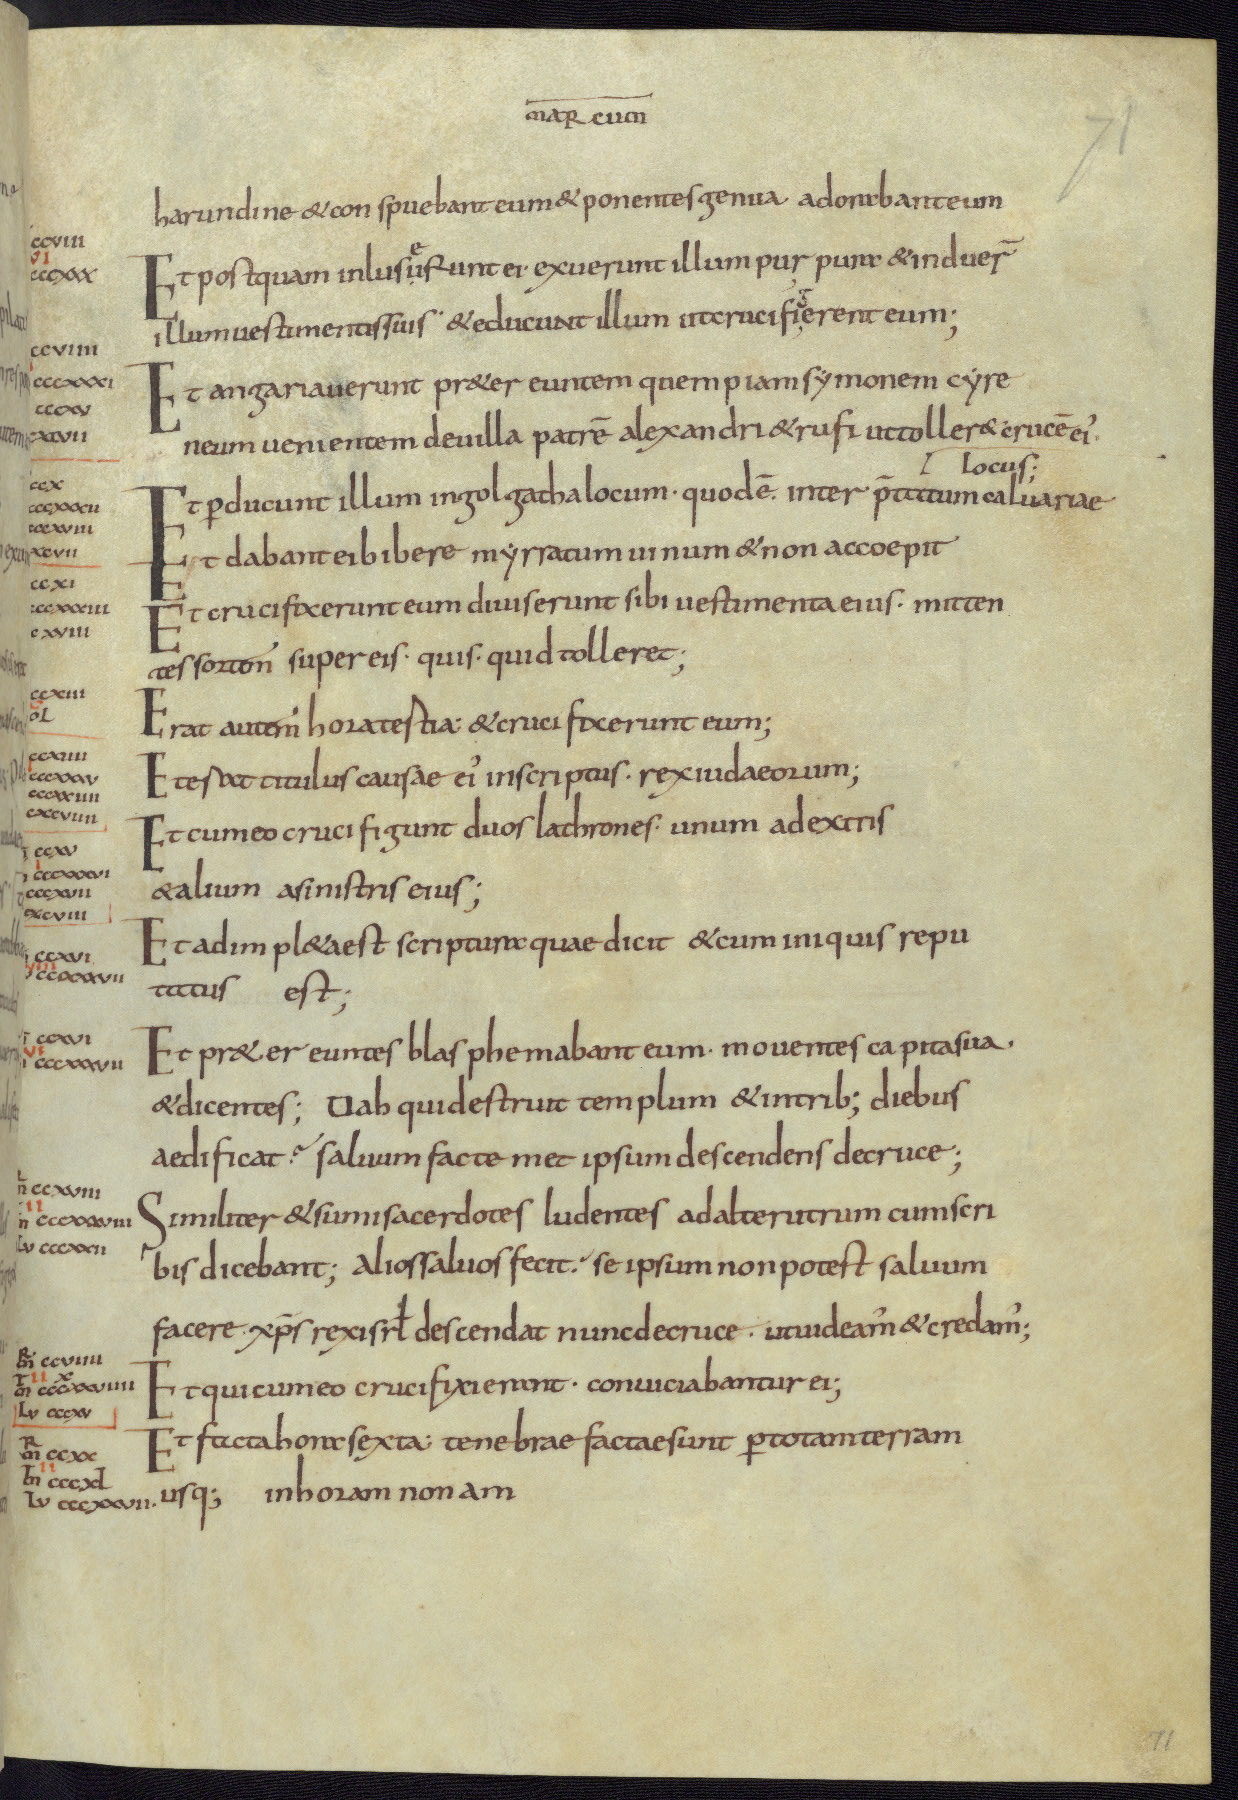 marcum
71
harundine & conspuebant eum & ponentes genua adorabant eum
ccviii
vi
cccxxx
Et postquam inluserunt ei· exuerunt illum purpura & induer̄
illum uestimentis suis· & educunt illum ut crucifigerent eum;
ccviiii
cccxxxi
Et angariauerunt pr&er euntem quempiam symonem cyre
neum uenientem de uilla patrē alexandri & rufi ut toller& crucē ei᾿·
locus;
ccx
cccxxxii
Et ꝑducunt illum in golgatha locum· quod ē· inter p̄tatum caluariae
Et dabant ei bibere myrratum uinum & non accoepit
ccxi
cccxxxiii
Et crucifixerunt eum diuiserunt sibi uestimenta eius· mitten
tes sortem super eis· quis· quid tolleret;
ccxiii
Erat autem hora tertia· & crucifixerunt eum;
ccxiiii
cccxxxv
cccxxiiii
Et erat titulus causae ei᾿ inscriptus· rex iudaeorum;
Et cum eo crucifigunt duos lathrones· unum ad extris
ccxv
cccxxxvi
cccxvii
& alium a sinistris eius;
Et adimpl&a est scriptura quae dicit & cum iniquis repu
ccxvi
viii
cccxxxvii
tatus est;
ccxvi
vi
cccxxxvii
Et pr&er euntes blasphemabant eum· mouentes capita sua·
& dicentes; Uah qui destruit templum & in trib; diebus
aedificat· saluum fac temet ipsum descendens de cruce;
ccxviii
ii
cccxxxviii
Lu cccxxii
Similiter & sumi sacerdotes ludentes ad alterutrum cum scri
bis dicebant; Alios saluos fecit· se ipsum non potest saluum
facere· xp̄s rex isrł descendat nunc de cruce· ut uideam᾿ & credam᾿;
ccviiii
cccxxxviiii
Lu cccxv
Et qui cum eo crucifixi erant· conuiciabantur ei;
Et facta hora sexta· tenebrae factae sunt ꝑ totam terram
ccxx
ii
cccxl
Lu cccxxvii·
usq; in horam nonam
71